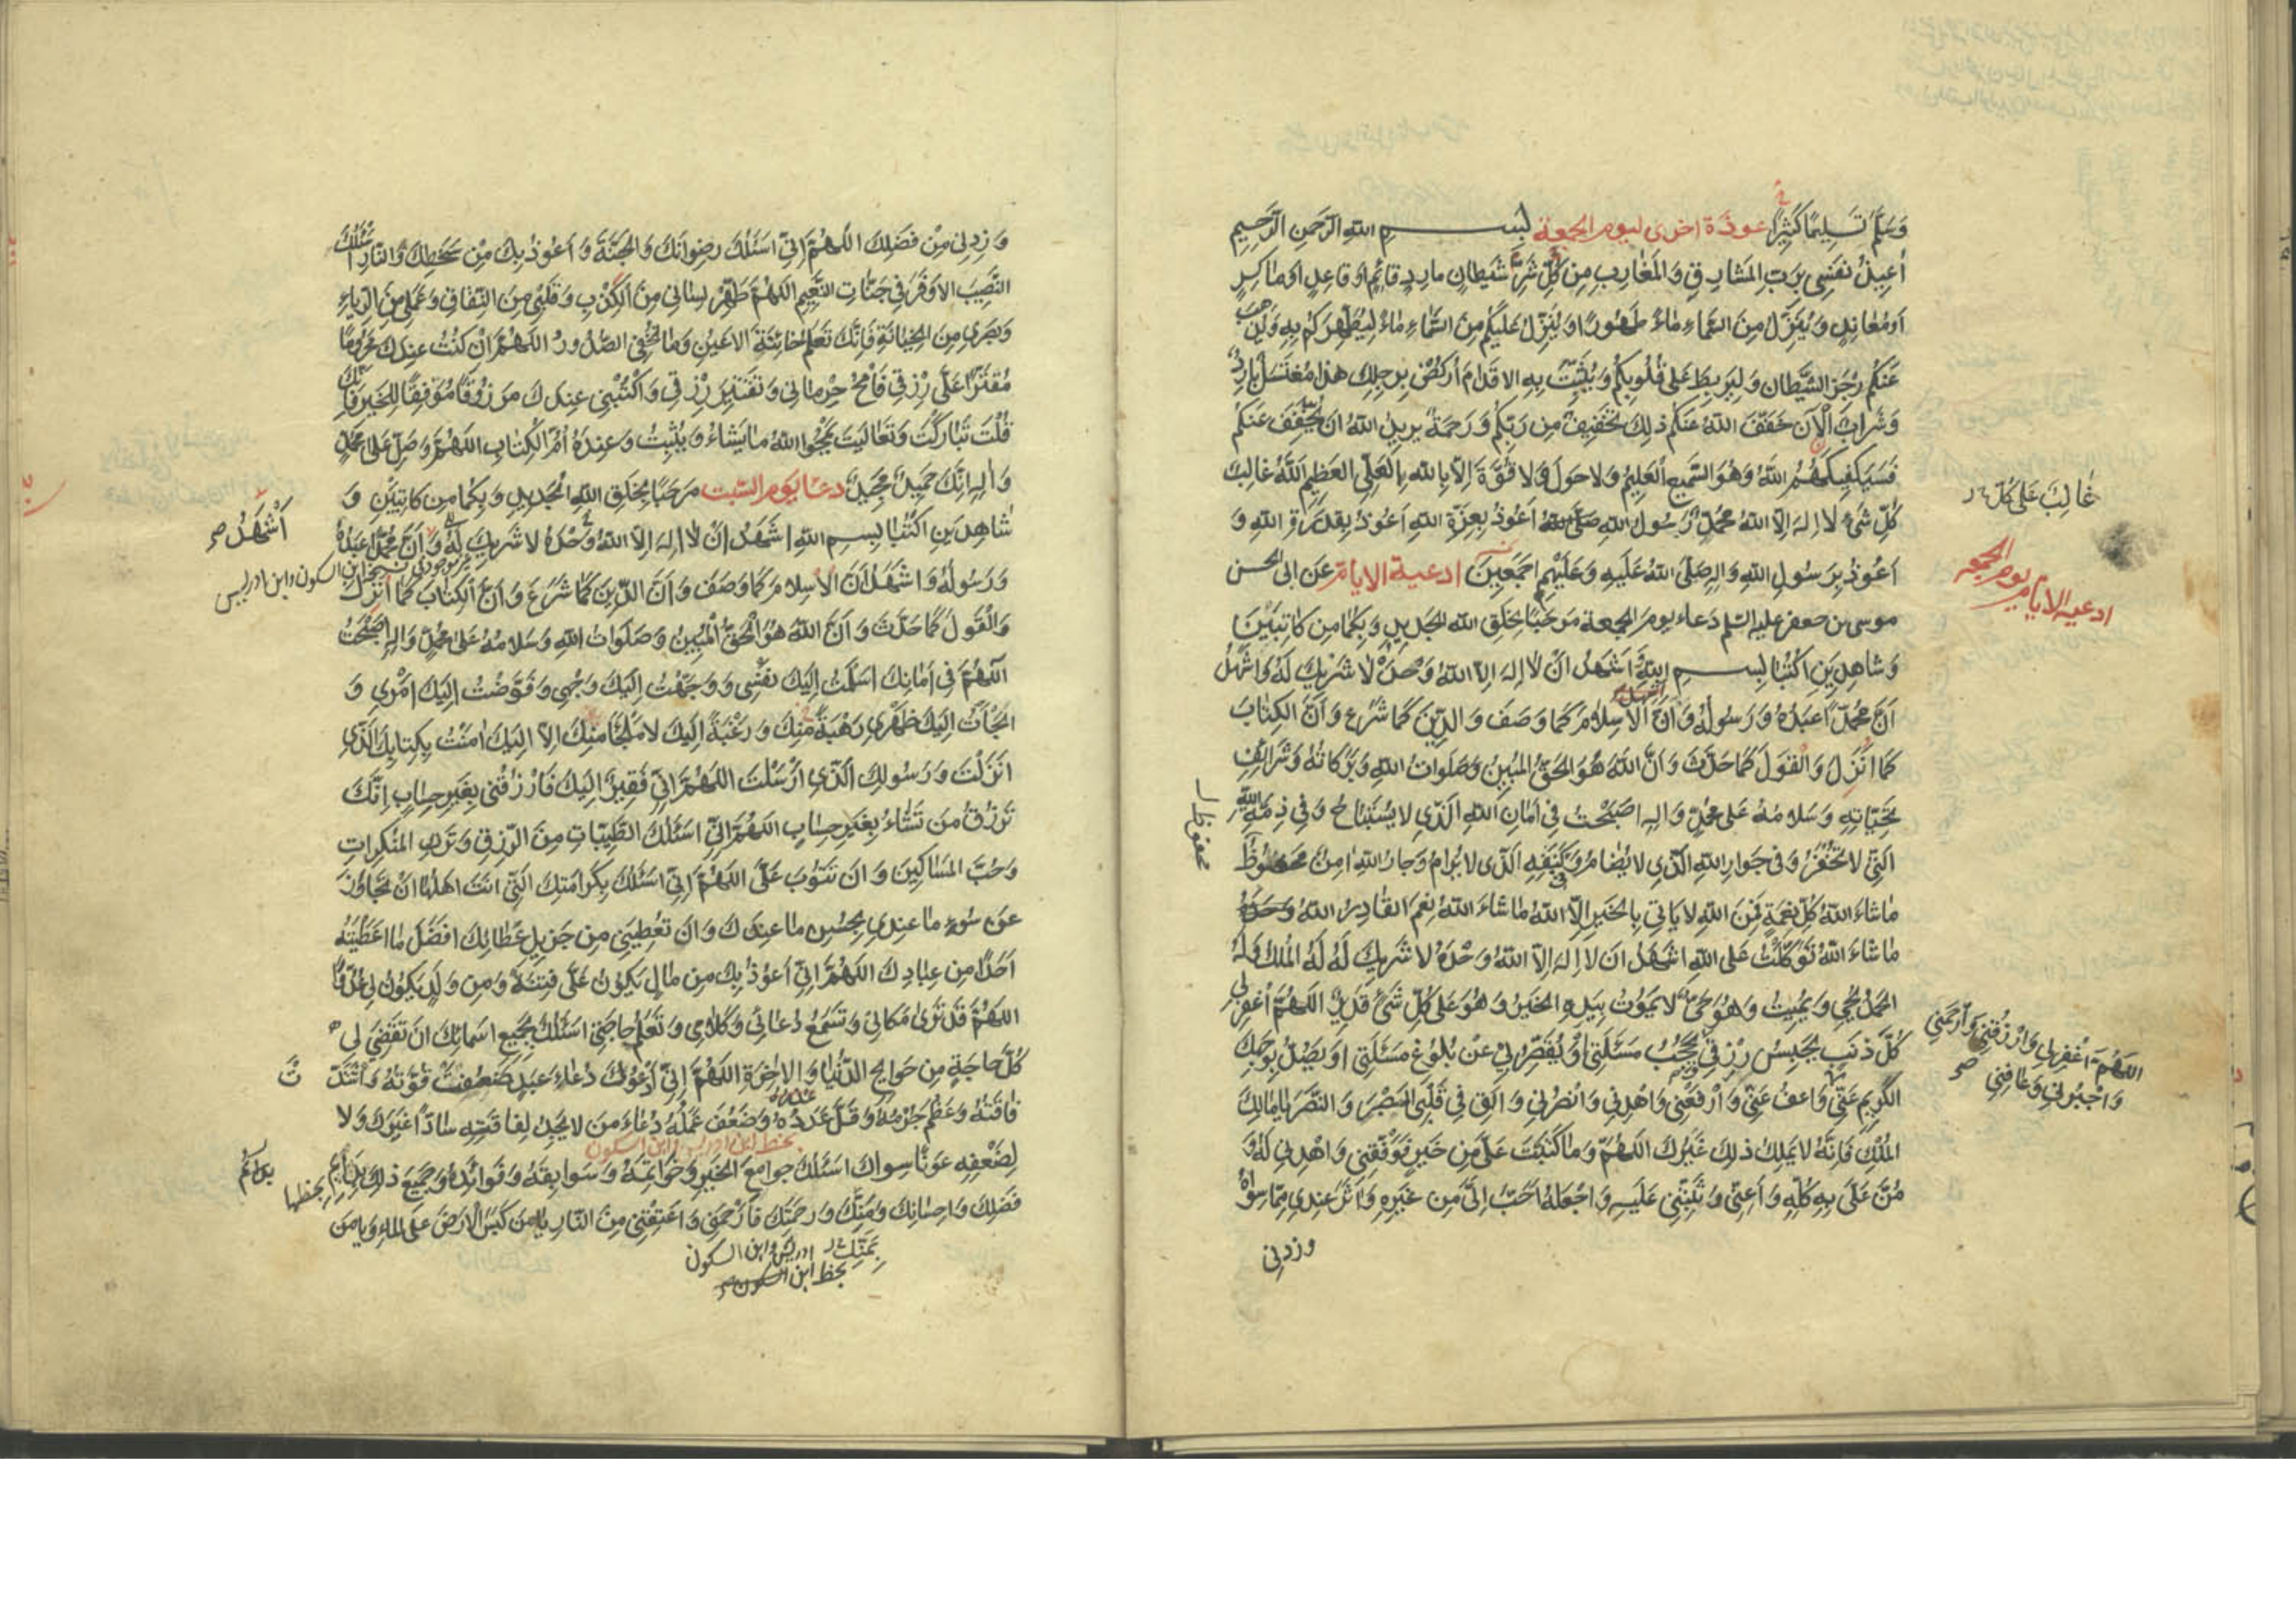 وَسَلَّمَ تَسْلِيمًا كَثِيرًا عوذة اخرى ليوم الجمعة بسم الله الرحمن الرحيم
أُعِيذُ نَفْسِي بِرَبِّ المَشَارِقِ وَالمَغَارِبِ مِن كُلِّ شَيْطَانٍ مَارِدٍ قَائِمٍ اَوْ قَاعِدٍ
اَوْ مُعَانِدٍ وَيُنَزِّلُ مِنَ السَّمَاءِ مَاءً طَهُورًا وَيُنَزِّلُ عَلَيْكُم مِنَ السَّمَاءِ مَاءً لِيُطَهِّرَكُم بِهِ وَيُذْهِبَ
عَنْكُم رِجْزَ الشَّيْطَانِ وَلِيَرْبِطَ عَلَى قُلُوبِكُم وَيُثَبِّتَ بِهِ الاَقْدَامَ اُرْكُضْ بِرِجْلِكَ هَذَا مُغْتَسَلٌ بَارِدٌ
وَشَرَابٌ اَلْآنَ خَفَّفَ اللهُ عَنْكُم ذَلِكَ تَخْفِيفٌ مِن رَبِّكُم وَرَحْمَةٌ يُرِيدُ اللهُ اَن يُخَفِّفَ عَنْكُم
فَسَيَكْفِيكَهُمُ اللهُ وَهُوَ السَّمِيعُ العَلِيمُ وَلَا حَوْلَ وَلَا قُوَّةَ اِلَّا بِاللهِ العَلِيِّ العَظِيمِ اللهُ غَالِبُ
كُلِّ شَيْءٍ لَا اِلهَ اِلَّا اللهُ مُحَمَّدٌ رَسُولُ اللهِ أَعُوذُ بِعِزَّةِ اللهِ اَعُوذُ بِقُدْرَةِ اللهِ وَ
اَعُوذُ بِرَسُولِ اللهِ صَلَّى اللهُ عَلَيْهِ وَعَلَيْهِم اَجْمَعِينَ ادعية الايام عن ابى الحسن
موسى بن جعفر عليه السلم دعاء يوم الجمعة مَرْحَبًا بِخَلْقِ اللهِ الجَدِيدِ وَبِكُمَا مِن كَاتِبَيْنِ
وَشَاهِدَيْنِ اكْتُبَا بِسْمِ اللهِ اَشْهَدُ اَنْ لَا اِلهَ اِلَّا اللهُ وَحْدَهُ لَا شَرِيكَ لَهُ وَاَشْهَدُ
اَنَّ مُحَمَّدًا عَبْدُهُ وَرَسُولُهُ وَاَنَّ الاِسْلَامَ كَمَا وَصَفَ وَالدِّينَ كَمَا شَرَعَ وَاَنَّ الكِتَابَ
كَمَا اَنْزَلَ وَالْقَوْلَ كَمَا حَدَّثَ وَاَنَّ اللهَ هُوَ الحَقُّ المُبِينُ وَصَلَوَاتُ اللهِ وَبَرَكَاتُهُ وَشَرَائِفُ
تَحِيَّاتِهِ وَسَلَامُهُ عَلَى مُحَمَّدٍ وَالِهِ اَصْبَحْتُ فِي اَمَانِ اللهِ الَّذِي لَا يُسْتَبَاحُ وَفِي ذِمَّةِ اللهِ
الَّتِي لَا تُخْفَرُ وَفِي جِوَارِ اللهِ الَّذِي لَا يُضَامُ وَكَنَفِهِ الَّذِي لَا يُرَامُ وَجَارُ اللهِ اٰمِنٌ مَحْفُوظٌ
مَاشَاءَ اللهُ كُلُّ نِعْمَةٍ فَمِنَ اللهِ لَا يَاْتِي بِالخَيْرِ اِلَّا اللهُ مَاشَاءَ اللهُ نِعْمَ القَادِرُ اللهُ
مَاشَاءَ اللهُ تَوَكَّلْتُ عَلَى اللهِ اَشْهَدُ اَن لَا اِلهَ اِلَّا اللهُ وَحْدَهُ لَا شَرِيكَ لَهُ لَهُ المُلْكُ وَلَهُ
الحَمْدُ يُحْيِي وَيُمِيتُ وَهُوَ حَيٌّ لَا يَمُوتُ بِيَدِهِ الخَيْرُ وَهُوَ عَلَى كُلِّ شَيْءٍ قَدِيرٌ اللّهُمَّ اغْفِر لِي
كُلَّ ذَنْبٍ يَحْبِسُ رِزْقِي وَيَحْجُبُ مَسْئَلَتِي اَوْ يُقَصِّرُ بِي عَنْ بُلُوغِ مَسْئَلَتِي اَوْ يَصُدُّ بِوَجْهِكَ
الكَرِيمِ عَنِّي وَارْفَعْنِي وَاهْدِنِي وَانْصُرْنِي وَاَلْقِ فِي قَلْبِي الصَّبْرَ وَالنَّصْرَ يَا مَالِكَ
المُلْكِ فَاِنَّهُ لَا يَمْلِكُ ذَلِكَ غَيْرُكَ اللّهُمَّ وَمَا كَتَبْتَ عَلَيَّ مِن خَيْرٍ فَوَفِّقْنِي وَاهْدِنِي لَهُ وَ
مُنَّ عَلَيَّ بِهِ كُلِّهِ وَاَعِنِّي وَثَبِّتْنِي عَلَيْهِ وَاجْعَلْهُ اَحَبَّ اِلَيَّ مِن غَيْرِهِ وَاٰثَرَ عِنْدِي مِمَّا سِوَاهُ
وزدنى
غَالِبٌ عَلَى كُلِّ
ادعيه الايام يوم الجمعه
محفوظ
اللّهُمَّ اغْفِرلِي وَارْزُقْنِي وَارْحَمْنِي
وَاجْبُرْنِي وَعَافِنِي
وَزِدْنِي مِنْ فَضْلِكَ اللّهُمَّ اِنِّي اَسْئَلُكَ رِضْوَانَكَ وَالجَنَّةَ وَاَعُوذُ بِكَ مِنْ سَخَطِكَ وَالنَّارِ اَسْئَلُكَ
النَّصِيبَ الاَوْفَرَ فِي جَنَّاتِ النَّعِيمِ اللّهُمَّ طَهِّرْ لِسَانِي مِنَ الكِذْبِ وَقَلْبِي مِنَ النِّفَاقِ وَعَمَلِي مِنَ الرِّيَاءِ
وَبَصَرِي مِنَ الخِيَانَةِ فَاِنَّكَ تَعْلَمُ خَائِنَةَ الاَعْيُنِ وَمَا تُخْفِي الصُّدُورُ اللّهُمَّ اِنْ كُنْتُ عِنْدَكَ مَحْرُومًا
مُقَتَّرًا عَلَيَّ رِزْقِي فَامْحُ حِرْمَانِي وَتَقْتِيرَ رِزْقِي وَاكْتُبْنِي عِنْدَكَ مَرْزُوقًا مُوَفَّقًا لِلخَيْرِ فَاِنَّكَ
قُلْتَ تَبَارَكْتَ وَتَعَالَيْتَ يَمْحُوا اللهُ مَا يَشَاءُ وَيُثْبِتُ وَعِنْدَهُ اُمُّ الكِتَابِ اللّهُمَّ وَصَلِّ عَلَى مُحَمَّدٍ
وَالِهِ اِنَّكَ حَمِيدٌ مَجِيدٌ دعاء يوم السبت مَرْحَبًا بِخَلْقِ اللهِ الجَدِيدِ وَبِكُمَا مِن كَاتِبَيْنِ وَ
شَاهِدَيْنِ اكْتُبَا بِسْمِ اللهِ اَشْهَدُ اَنْ لَا اِلهَ اِلَّا اللهُ وَحْدَهُ لَا شَرِيكَ لَهُ وَاَنَّ مُحَمَّدًا عَبْدُهُ
وَرَسُولُهُ وَاَشْهَدُ اَنَّ الاِسْلَامَ كَمَا وَصَفَ وَاَنَّ الدِّينَ كَمَا شَرَعَ وَاَنَّ الكِتَابَ كَمَا اَنْزَلَ
وَالْقَوْلَ كَمَا حَدَّثَ وَاَنَّ اللهَ هُوَ الْحَقُّ الْمُبِينُ وَصَلَوَاتُ اللهِ وَسَلَامُهُ عَلَى مُحَمَّدٍ وَالِهِ اَصْبَحْتُ
اللّهُمَّ فِي اَمَانِكَ اَسْلَمْتُ اِلَيْكَ نَفْسِي وَوَجَّهْتُ اِلَيْكَ وَجْهِي وَفَوَّضْتُ اِلَيْكَ اَمْرِي وَ
اَلْجَأْتُ اِلَيْكَ ظَهْرِي رَهْبَةً مِنْكَ وَرَغْبَةً اِلَيْكَ لَا مَلْجَأَ مِنْكَ اِلَّا اِلَيْكَ اٰمَنْتُ بِكِتَابِكَ الَّذِي
اَنْزَلْتَ وَرَسُولِكَ الَّذِي اَرْسَلْتَ اللّهُمَّ اِنِّي فَقِيرٌ اِلَيْكَ فَارْزُقْنِي بِغَيْرِ حِسَابٍ اِنَّكَ
تَرْزُقُ مَن تَشَاءُ بِغَيْرِ حِسَابٍ اللّهُمَّ اِنِّي اَسْئَلُكَ الطَّيِّبَاتِ مِنَ الرِّزْقِ وَتَرْكَ المُنْكَرَاتِ
وَحُبَّ المَسَاكِينِ وَاَن تَتُوبَ عَلَيَّ اللّهُمَّ اِنِّي اَسْئَلُكَ بِكَرَامَتِكَ الَّتِي اَنْتَ اَهْلُهَا اَنْ تَجَاوَزَ
عَن سُوءِ مَا عِنْدِي بِحُسْنِ مَا عِنْدَكَ وَاَن تُعْطِيَنِي مِن جَزِيلِ عَطَائِكَ اَفْضَلَ مَا اَعْطَيْتَهُ
اَحَدًا مِن عِبَادِكَ اللّهُمَّ اِنِّي اَعُوذُ بِكَ مِن مَالٍ يَكُونُ عَلَيَّ فِتْنَةً وَمِن وَلَدٍ يَكُونُ لِي عَدُوًّا
اللّهُمَّ قَد تَرَى مَكَانِي وَتَسْمَعُ دُعَائِي وَكَلَامِي وَتَعْلَمُ حَاجَتِي اَسْئَلُكَ بِجَمِيعِ اَسْمَائِكَ اَن تَقْضِيَ لِي
كُلَّ حَاجَةٍ مِن حَوَائِجِ الدُّنْيَا وَالاٰخِرَةِ اللّهُمَّ اِنِّي اَدْعُوكَ دُعَاءَ عَبْدٍ ضَعُفَتْ قُوَّتُهُ وَاشْتَدَّتْ
فَاقَتُهُ وَعَظُمَ جُرْمُهُ وَقَلَّ عَدَدُهُ وَضَعُفَ عَمَلُهُ دُعَاءَ مَن لَا يَجِدُ لِفَاقَتِهِ سَادًّا غَيْرَكَ وَلَا
لِضَعْفِهِ عَوْنًا سِوَاكَ اَسْئَلُكَ جَوَامِعَ الخَيْرِ وَخَوَاتِمَهُ وَسَوَابِقَهُ وَفَوَائِدَهُ وَجَمِيعَ ذَلِكَ
فَضْلِكَ وَاِحْسَانِكَ وَمَنِّكَ وَرَحْمَتِكَ فَارْحَمْنِي وَاَعْتِقْنِي مِنَ النَّارِ يَا مَن كَبَسَ الاَرْضَ عَلَى المَاءِ وَيَا مَن
اَشْهَدُ
السكون وابن ادريس
بخط ابن ادريس وابن السكون
بدوام
بخطهما
بِمَنِّكَ ادريس وابن السكون
بخط ابن السكون